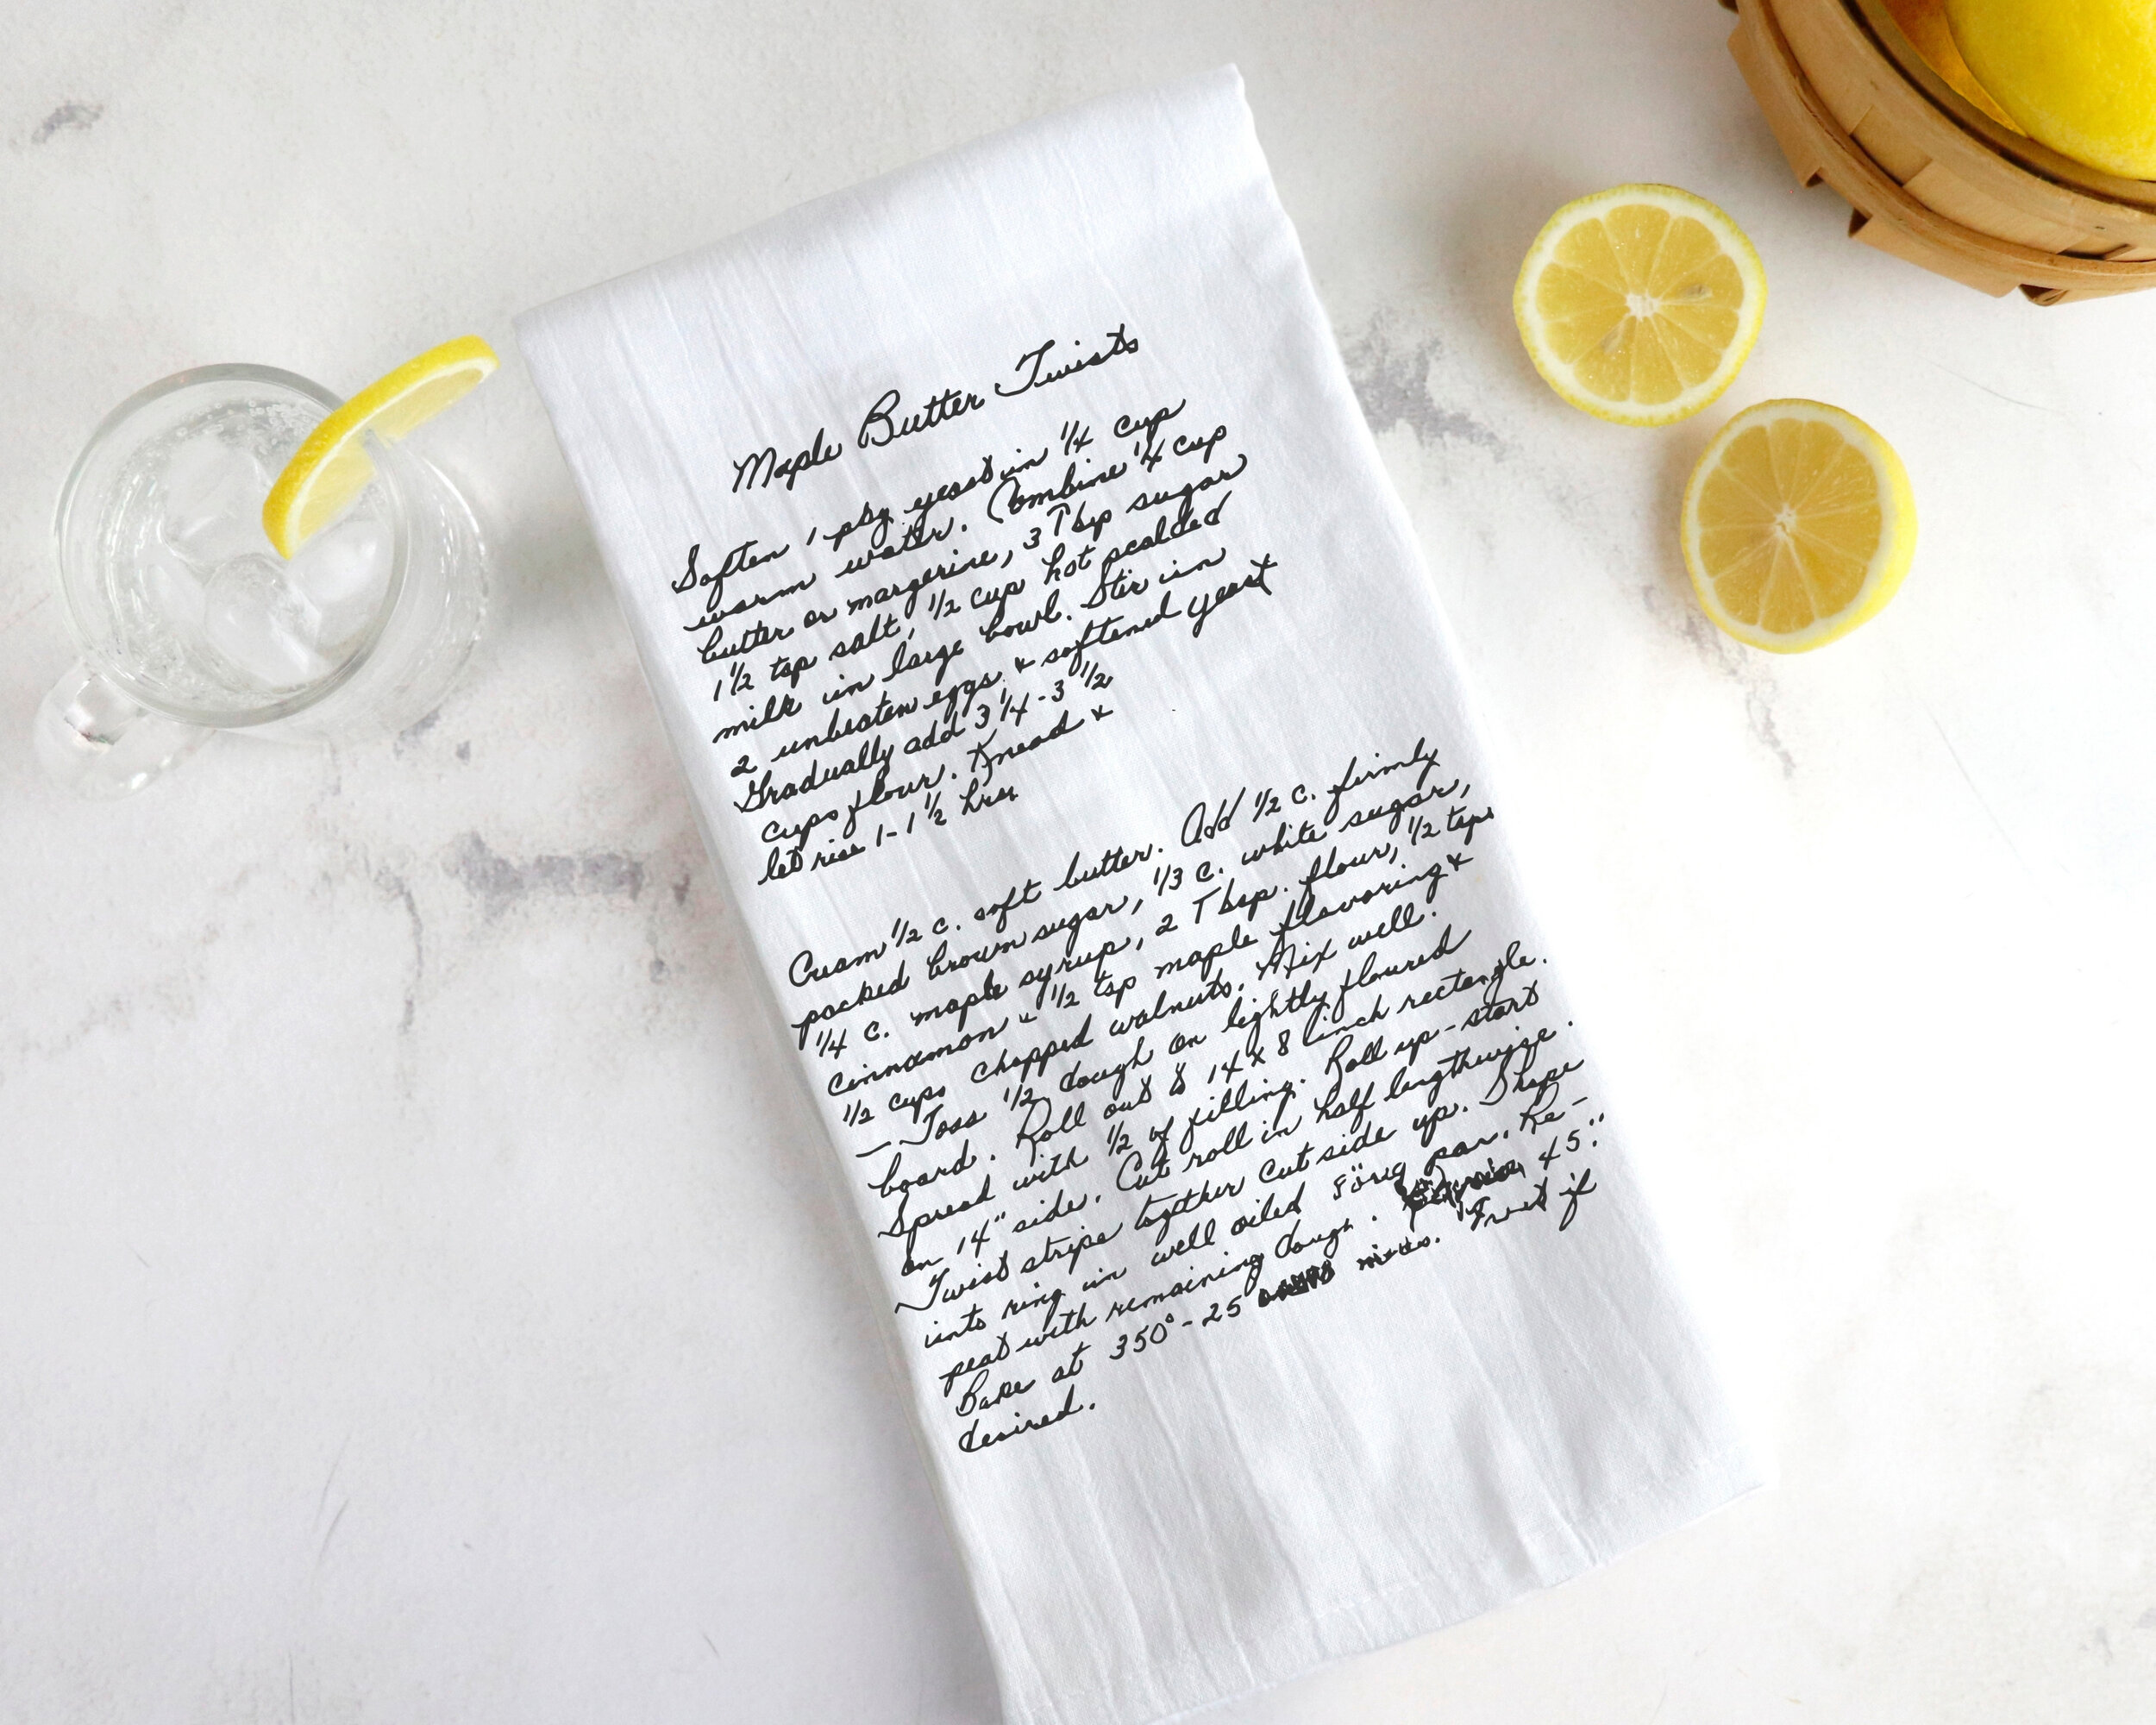 Maple Butter Twists
Soften 1 pkg yeast in 1/4 cup
warm water. Combine 1/4 cup
butter or margerine, 3 Tbsp sugar
1 1/2 tsp salt, 1/2 cup hot scalded
milk in large bowl. Stir in
2 unbeaten eggs & softened yeast
Gradually add 3 1/4 - 3 1/2
cups flour. Knead &
let rise 1 - 1 1/2 hrs.
Cream 1/2 c. soft butter. Add 1/2 c. firmly
packed brown sugar, 1/3 c. white sugar,
1/4 c. maple syrup, 2 Tbsp. flour, 1/2 tsp
cinnamon & 1/2 tsp maple flavoring &
1/2 cups chopped walnuts. Mix well.
— Toss 1/2 dough on lightly floured
board. Roll out to 14 x 8 inch rectangle.
Spread with 1/2 of filling. Roll up - start
on 14" side. Cut roll in half lengthwise.
Twist strips together cut side up. Shape
into ring in well oiled pan. Re-
peat with remaining dough. 45".
Bake at 350° - 25 mins. Frost if
desired.